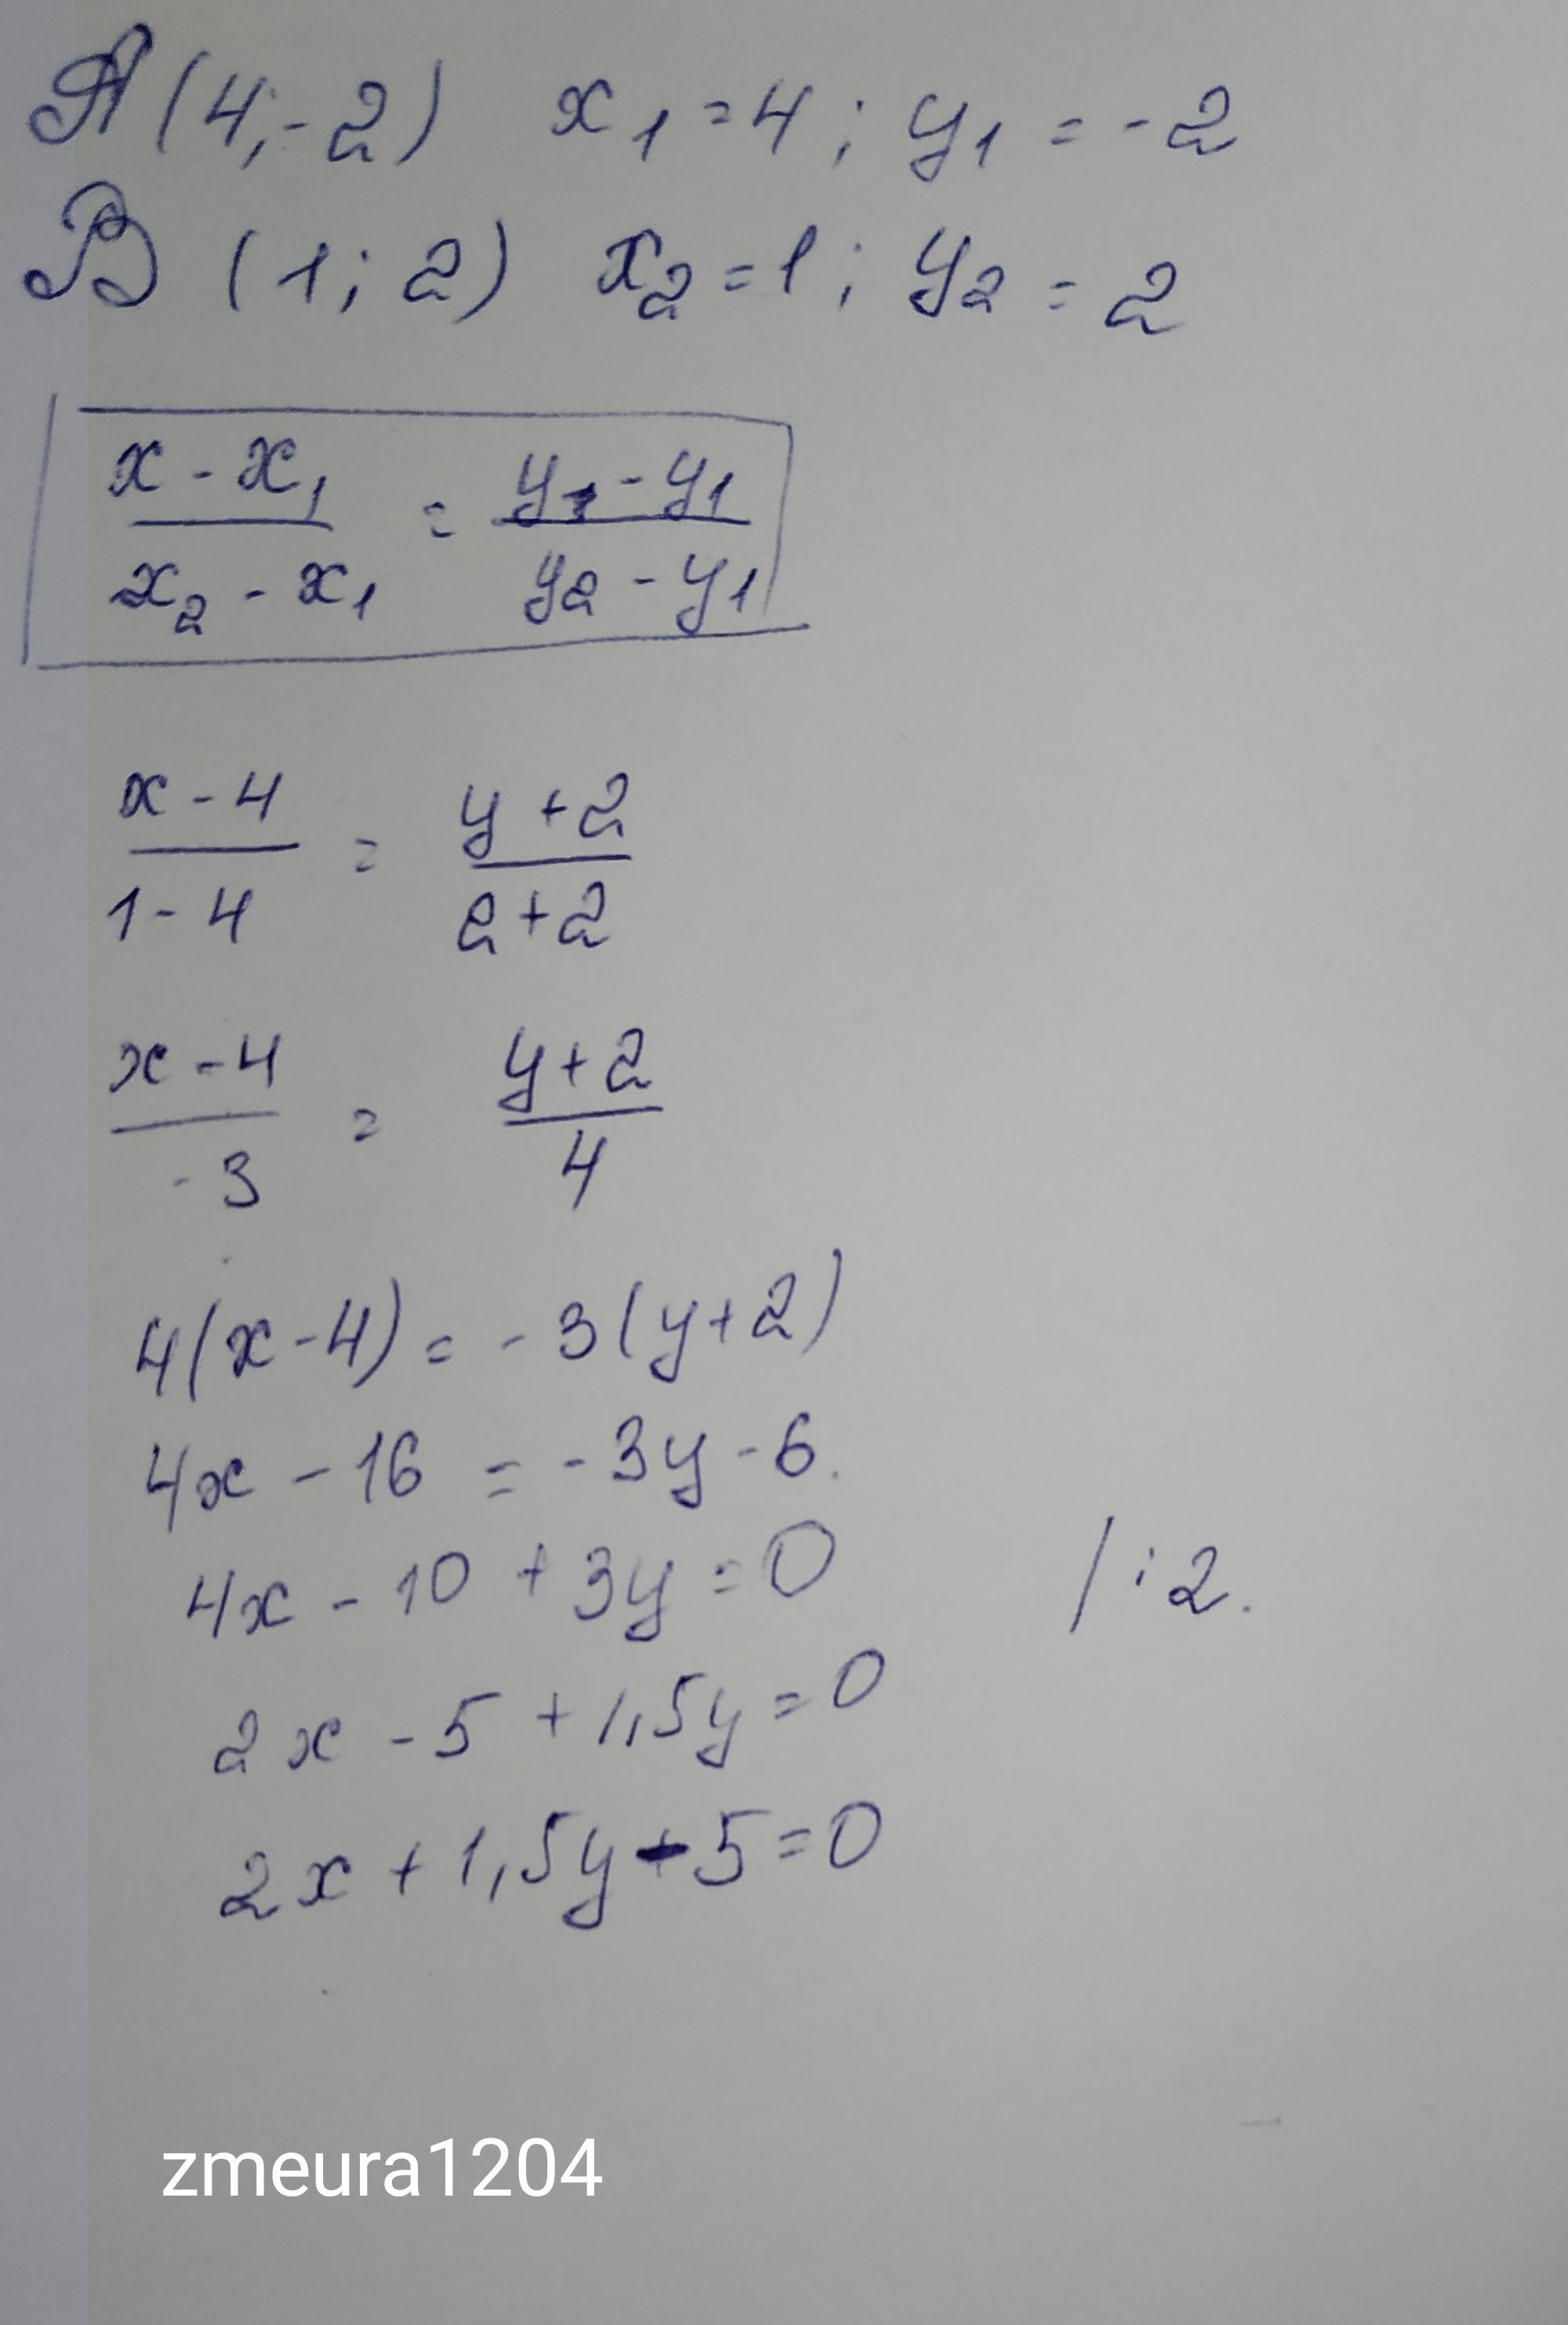 A (4; -2) x₁ = 4 ; y₁ = -2
B (1 ; 2) x₂ = 1 ; y₂ = 2
x - x₁ = y - y₁
x₂ - x₁ y₂ - y₁
x - 4 = y + 2
1 - 4 2 + 2
x - 4 = y + 2
- 3 4
4(x - 4) = - 3(y + 2)
4x - 16 = - 3y - 6.
4x - 10 + 3y = 0 / : 2.
2x - 5 + 1,5y = 0
2x + 1,5y - 5 = 0
zmeura1204